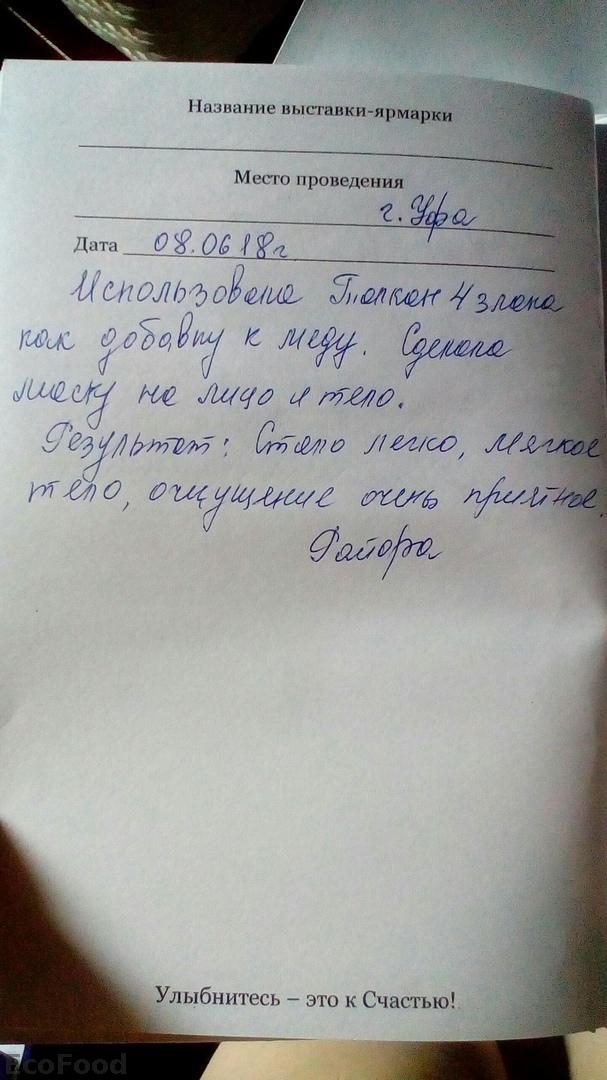 Название выставки-ярмарки
Место проведения
г. Уфа
Дата 08.06 18г
Использовала Толкан 4 злака
как добавку к меду. Сделала
маску на лицо и тело.
Результат: Стало легко, мягкое
тело, ощущение очень приятное.
Улыбнитесь – это к Счастью!
EcoFood